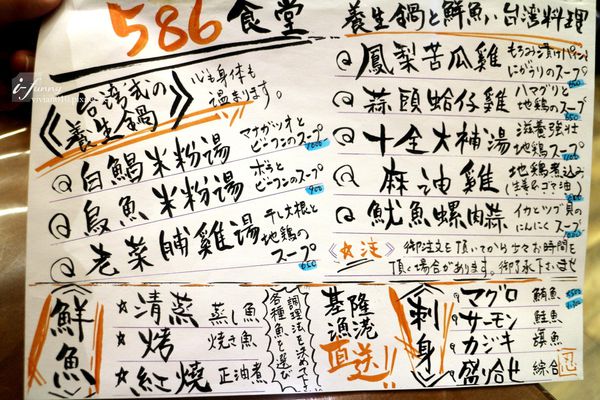 586食堂
養生鍋と鮮魚い台湾料理
i-funny
《台湾式の養生鍋》
心も身体も温まります。
白鯧米粉湯 マナガツオとビーフンのスープ
烏魚米粉湯 ボラとビーフンのスープ 900
老菜脯雞湯 干し大根と地鶏のスープ 650
鳳梨苦瓜雞 もろみ漬けパインとにがうりのスープ
蒜頭蛤仔雞 ハマグリと地鶏のスープ
十全大補湯 滋養強壮地鶏スープ
麻油雞 地鶏煮込み(生姜&ゴマ油)
魷魚螺肉蒜 イカとツブ貝のにんにくスープ
《☆注》御注文を頂いてから少々お時間を頂く場合があります。御了承下さいませ
《鮮魚》
☆清蒸 蒸し魚
☆烤 焼き魚
☆紅燒 正油煮
調理法を決めて下さい
各種魚を選び
基隆漁港直送!!
《刺身》
マグロ 鮪魚
サーモン 鮭魚
カジキ 旗魚
盛合せ 綜合
忍